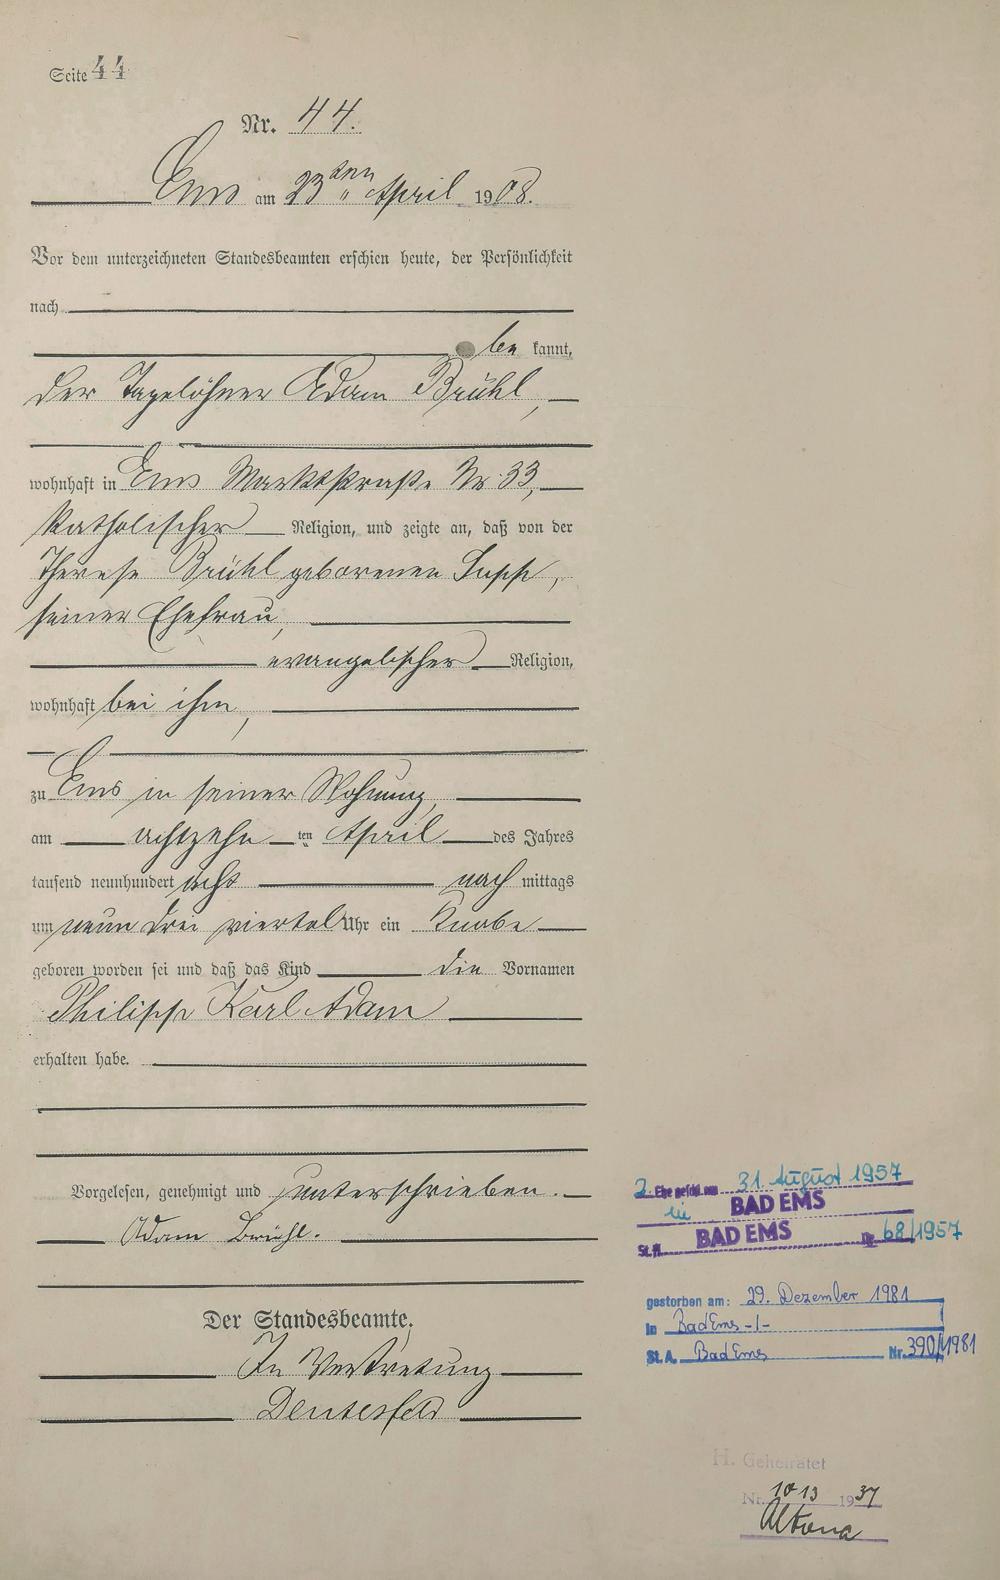 Seite 44
Nr. 44.
Ems am 23ten April 1908.
Vor dem unterzeichneten Standesbeamten erschien heute, der Persönlichkeit
nach
be kannt,
der Tagelöhner Adam Brühl,
wohnhaft in Ems Marktstraße Nr. 33,
katholischer Religion, und zeigte an, daß von der
Therese Brühl geborenen Supp,
seiner Ehefrau,
evangelischer Religion,
wohnhaft bei ihm,
zu Ems in seiner Wohnung,
am achtzehn ten April des Jahres
tausend neunhundert acht nach mittags
um neun drei viertel Uhr ein Knabe
geboren worden sei und daß das Kind die Vornamen
Philipp Karl Adam
erhalten habe.
Vorgelesen, genehmigt und unterschrieben.
Adam Brühl.
Der Standesbeamte.
In Vertretung
2. Ehe geschl. am 31. August 1957
in BAD EMS
St. A. BAD EMS Nr. 68/1957
gestorben am: 29. Dezember 1981
in Bad Ems -/-
St. A. Bad Ems Nr. 390/1981
H. Geheiratet
Nr. 1013 1937
Altona